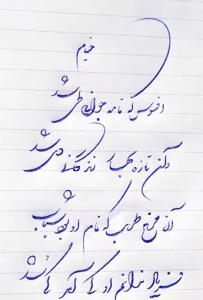 خیام
افسوس که نامه جوانی طی شد
وآن تازه بهار زندگانی دی شد
آن مرغ طرب که نام او بود شباب
فریاد ندانم او کی آمد کی شد